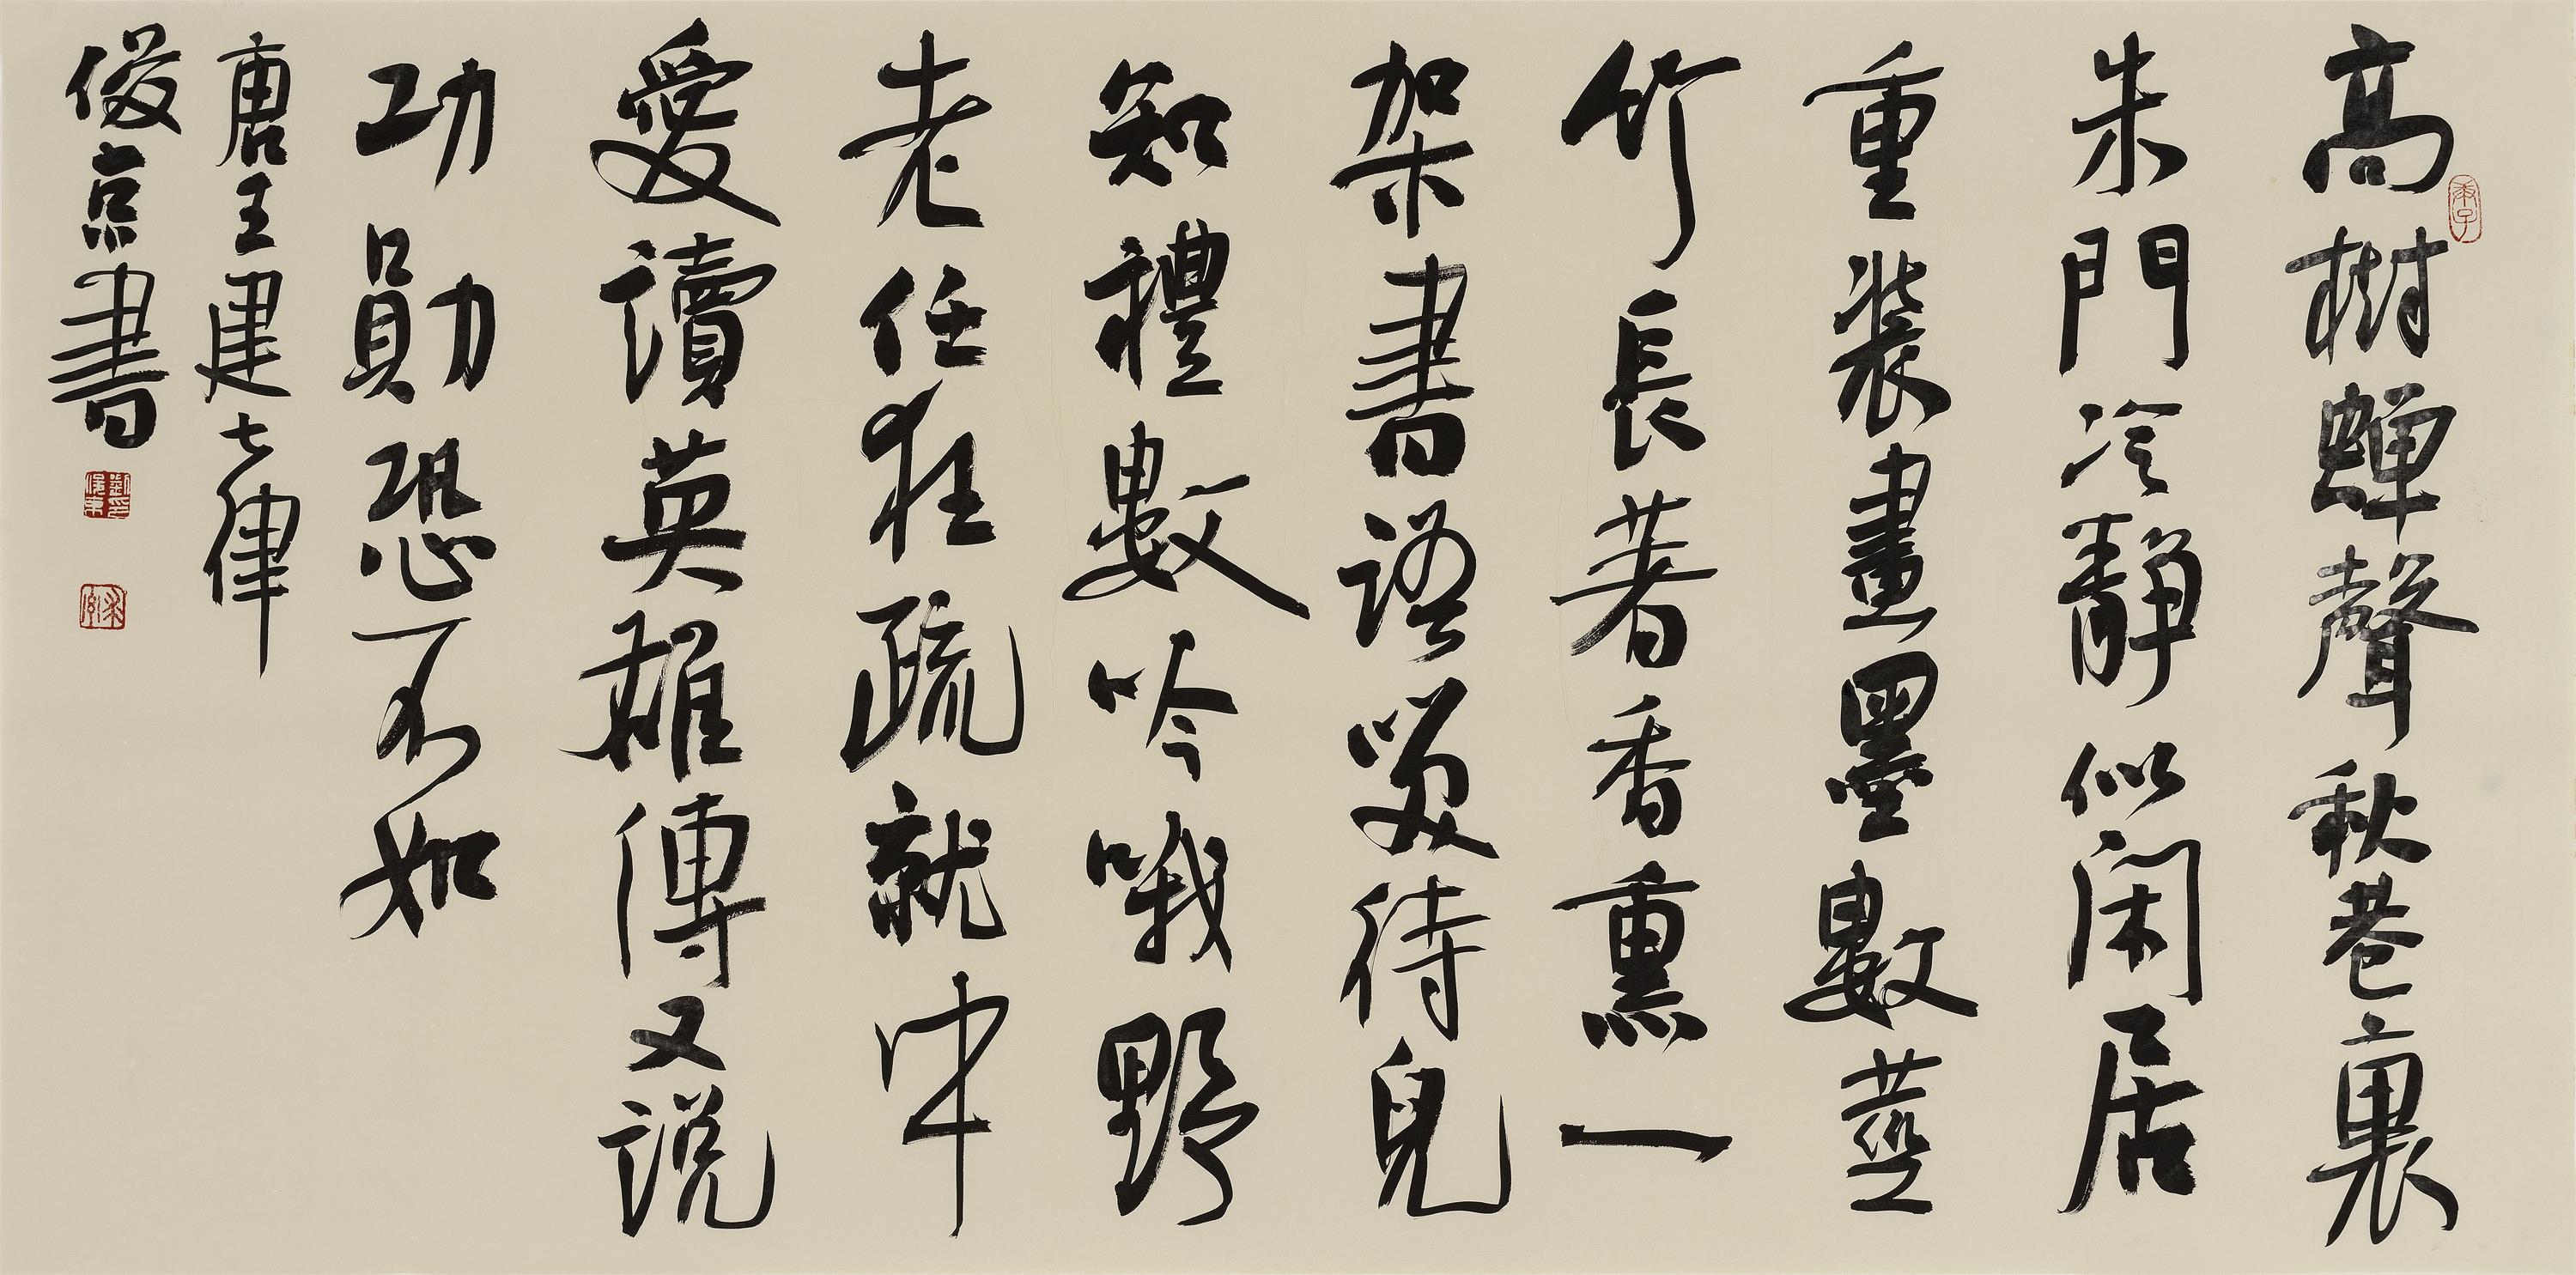 高樹蟬聲秋巷裏
朱門冷靜似閑居
重裝畫墨數莖
竹長著香熏一
架書語笑待兒
知禮數吟哦野
老任狂疏就中
愛讀英雄傳又説
功勛恐不如
唐王建七律
俊京書